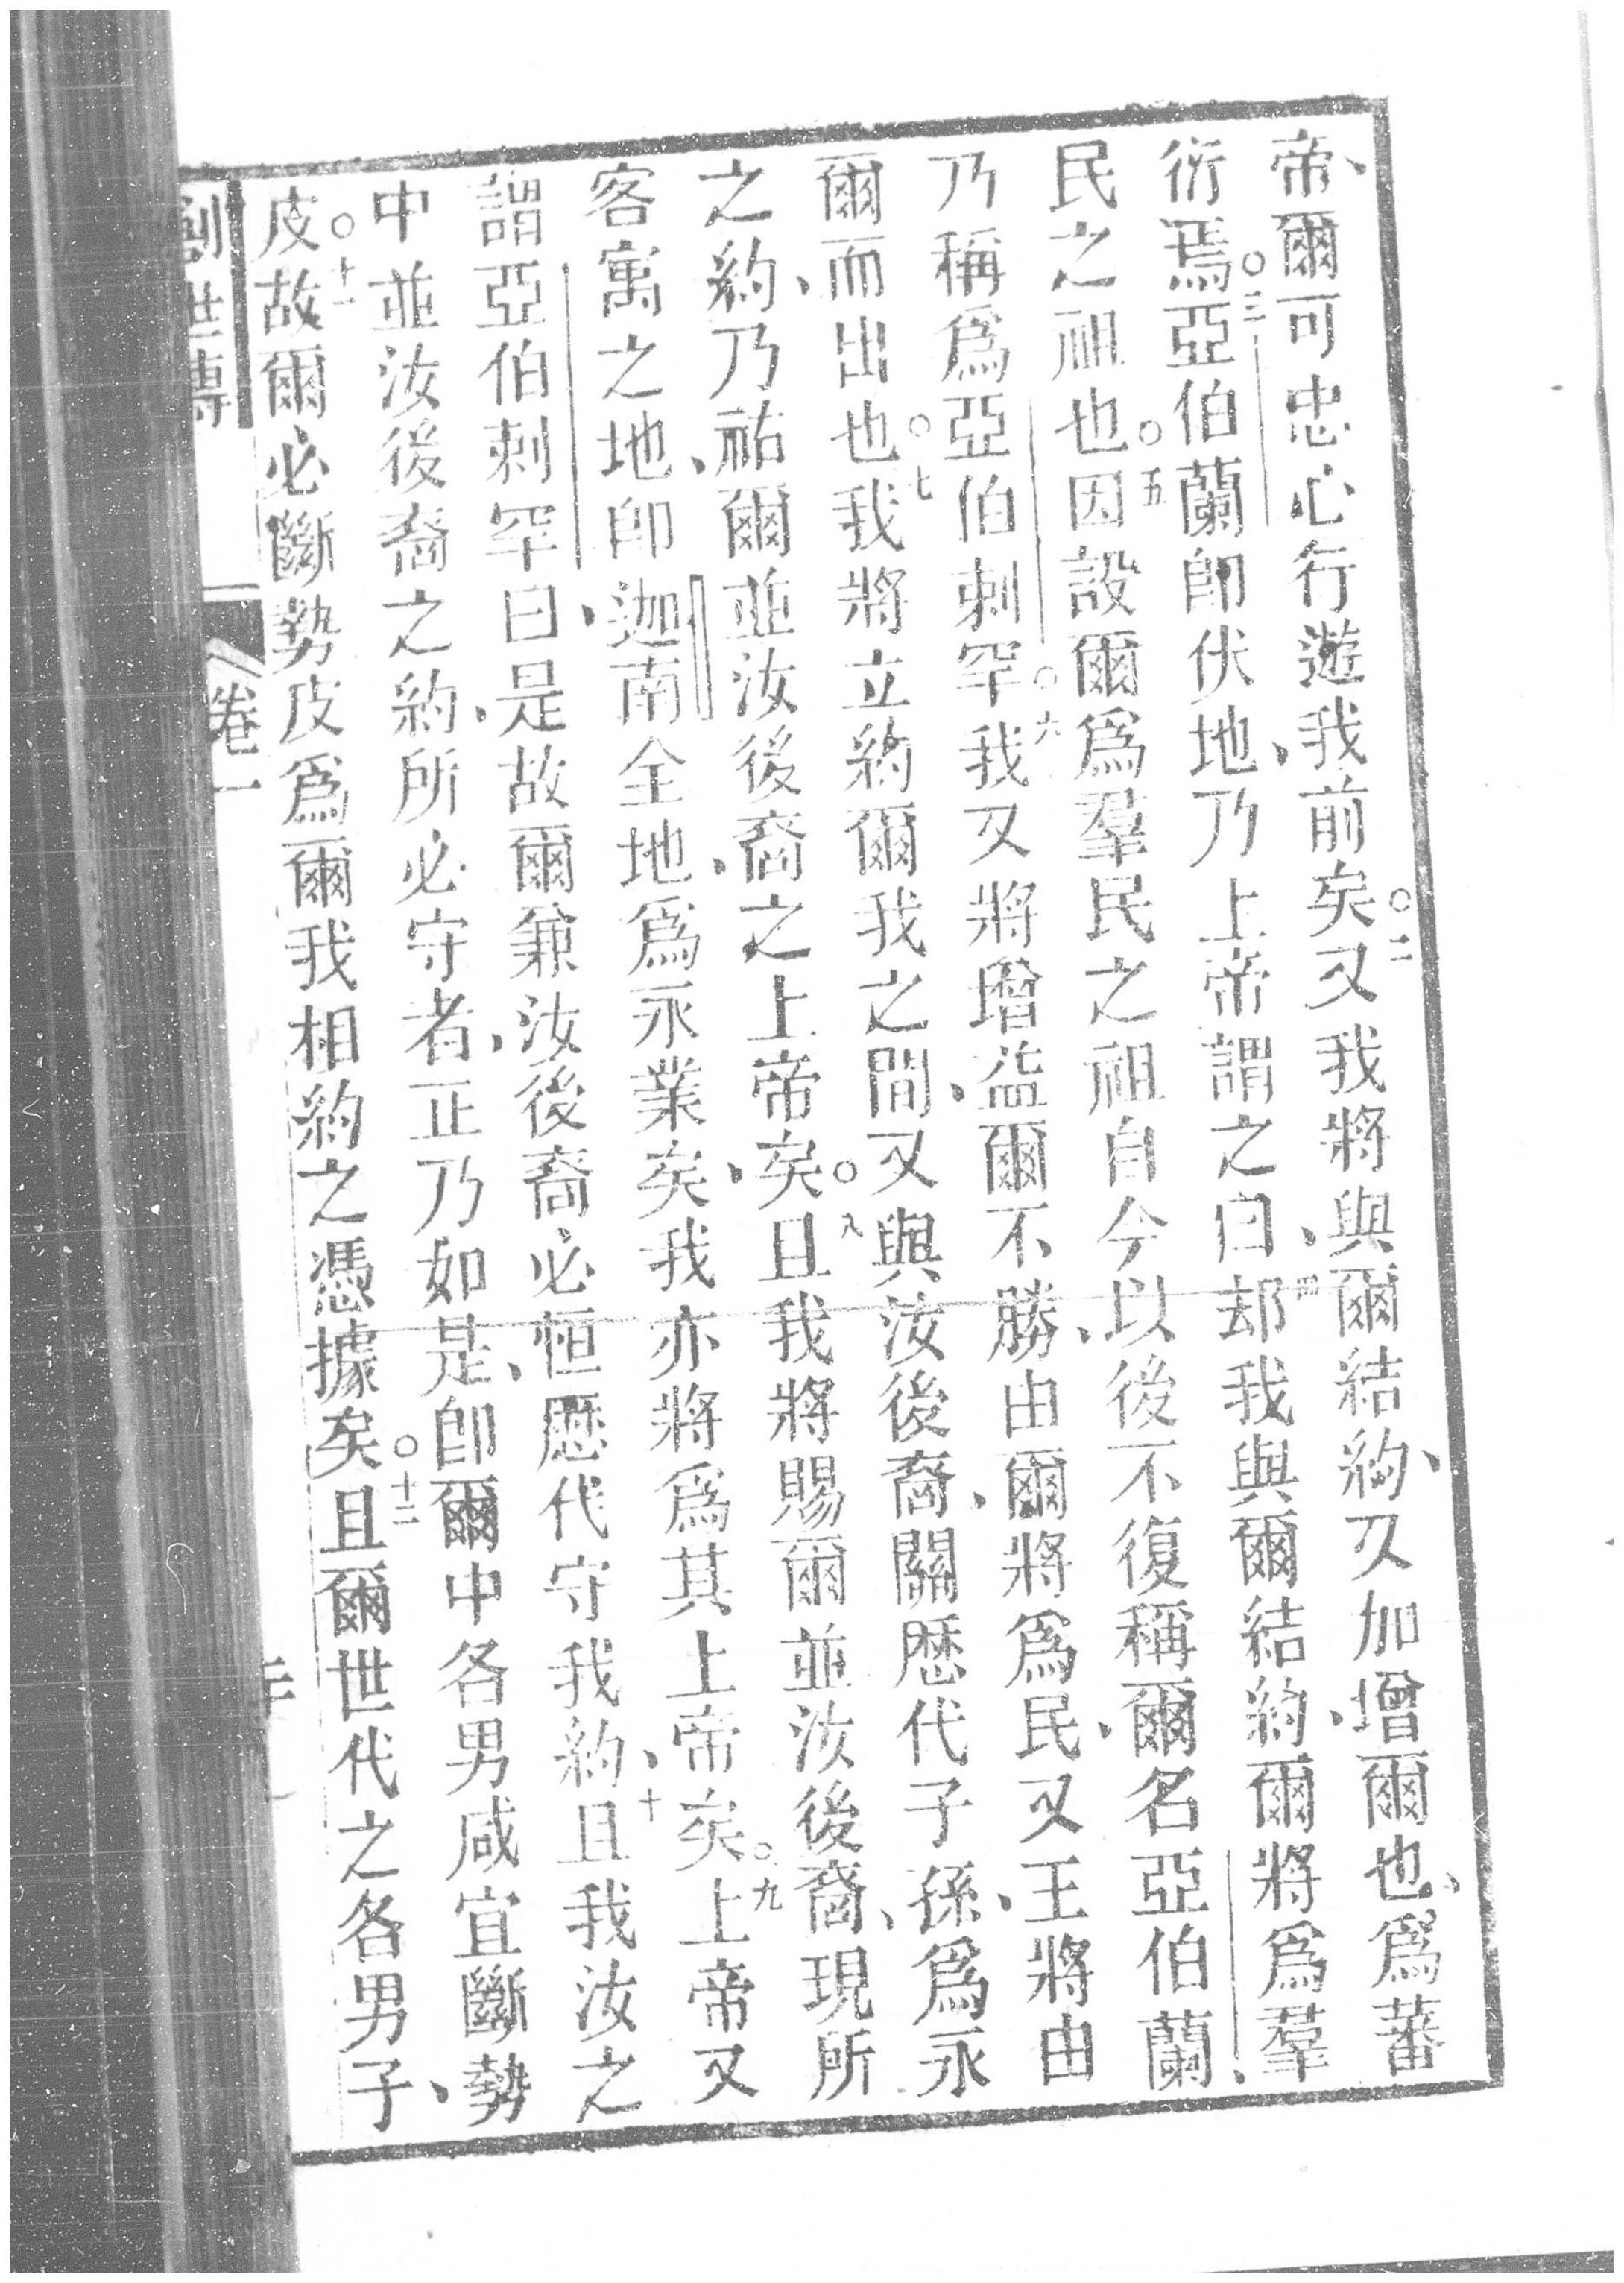 帝、爾可忠心行遊我前矣○二又我將與爾結約、又加增爾也、爲蕃
衍焉○三亞伯蘭卽伏地、乃上帝謂之曰、四却我與爾結約、爾將爲羣
民之祖也○五因設爾爲羣民之祖自今以後不復稱爾名亞伯蘭、
乃稱爲亞伯剌罕○六我又將增益爾不勝、由爾將爲民、又王將由
爾而出也○七我將立約爾我之間、又與汝後裔、關歷代子孫、爲永
之約、乃祐爾並汝後裔之上帝矣○八且我將賜爾並汝後裔、現所
客寓之地、卽迦南全地、爲永業矣、我亦將爲其上帝矣○九上帝又
謂亞伯剌罕曰、是故爾兼汝後裔必恒歷代守我約、十且我汝之
中並汝後裔之約、所必守者、正乃如是、卽爾中各男咸宜斷勢
皮○十一故爾必斷勢皮爲爾我相約之憑據矣○十二且爾世代之各男子、
創世傳
卷一